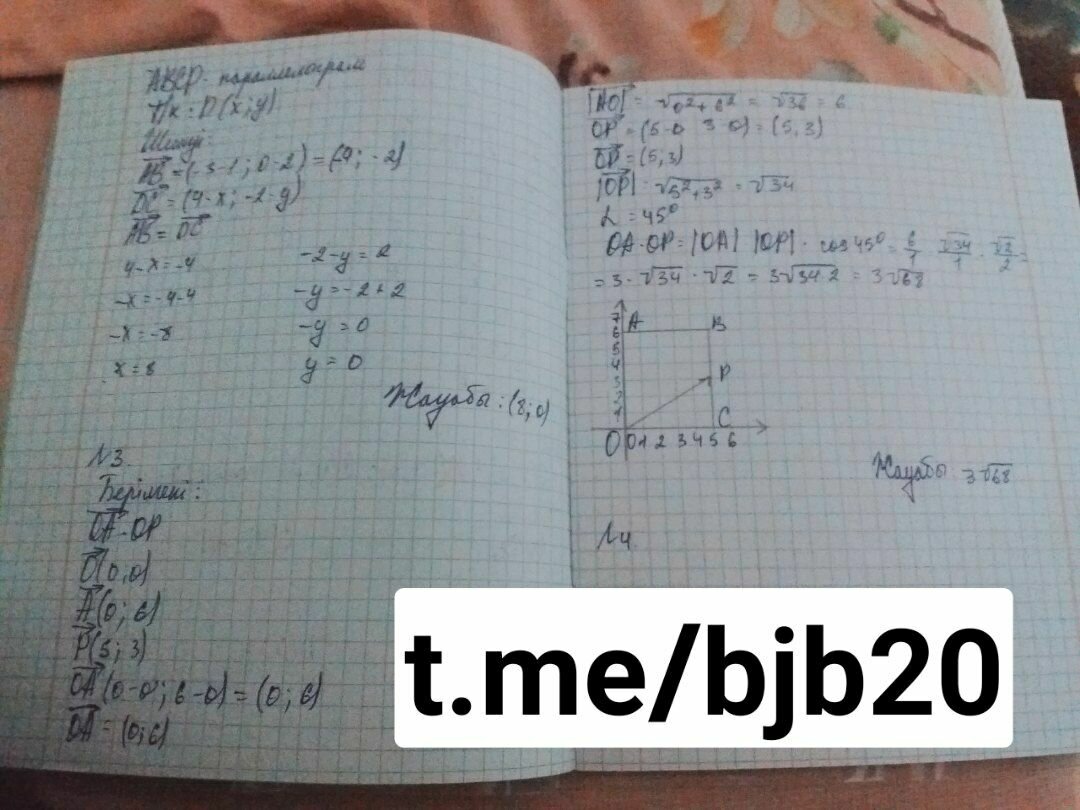 ABCD - параллелограм
Т/к: D(x; y)
Шешуі:
AB = (-3-1; 0-2) = (-4; -2)
DC = (4-x; -2-y)
AB = DC
4-x = -4
-2-y = 2
-x = -4-4
-y = -2+2
-x = -8
-y = 0
x = 8
y = 0
Жауабы: (8; 0)
N3.
Берілгені:
OA · OP
O(0,0)
A(0; 6)
P(5; 3)
OA(0-0; 6-0) = (0; 6)
OA = (0; 6)
|AO| = √0²+6² = √36 = 6
OP = (5-0 3-0) = (5,3)
OP = (5,3)
|OP| = √5²+3² = √34
L = 45°
OA·OP = |OA| |OP| · cos45° = 6/1 · √34/1 · √2/2 =
= 3·√34·√2 = 3√34·2 = 3√68
7
A
B
6
5
4
P
3
2
1
C
O 0 1 2 3 4 5 6
Жауабы: 3√68
N4
t.me/bjb20